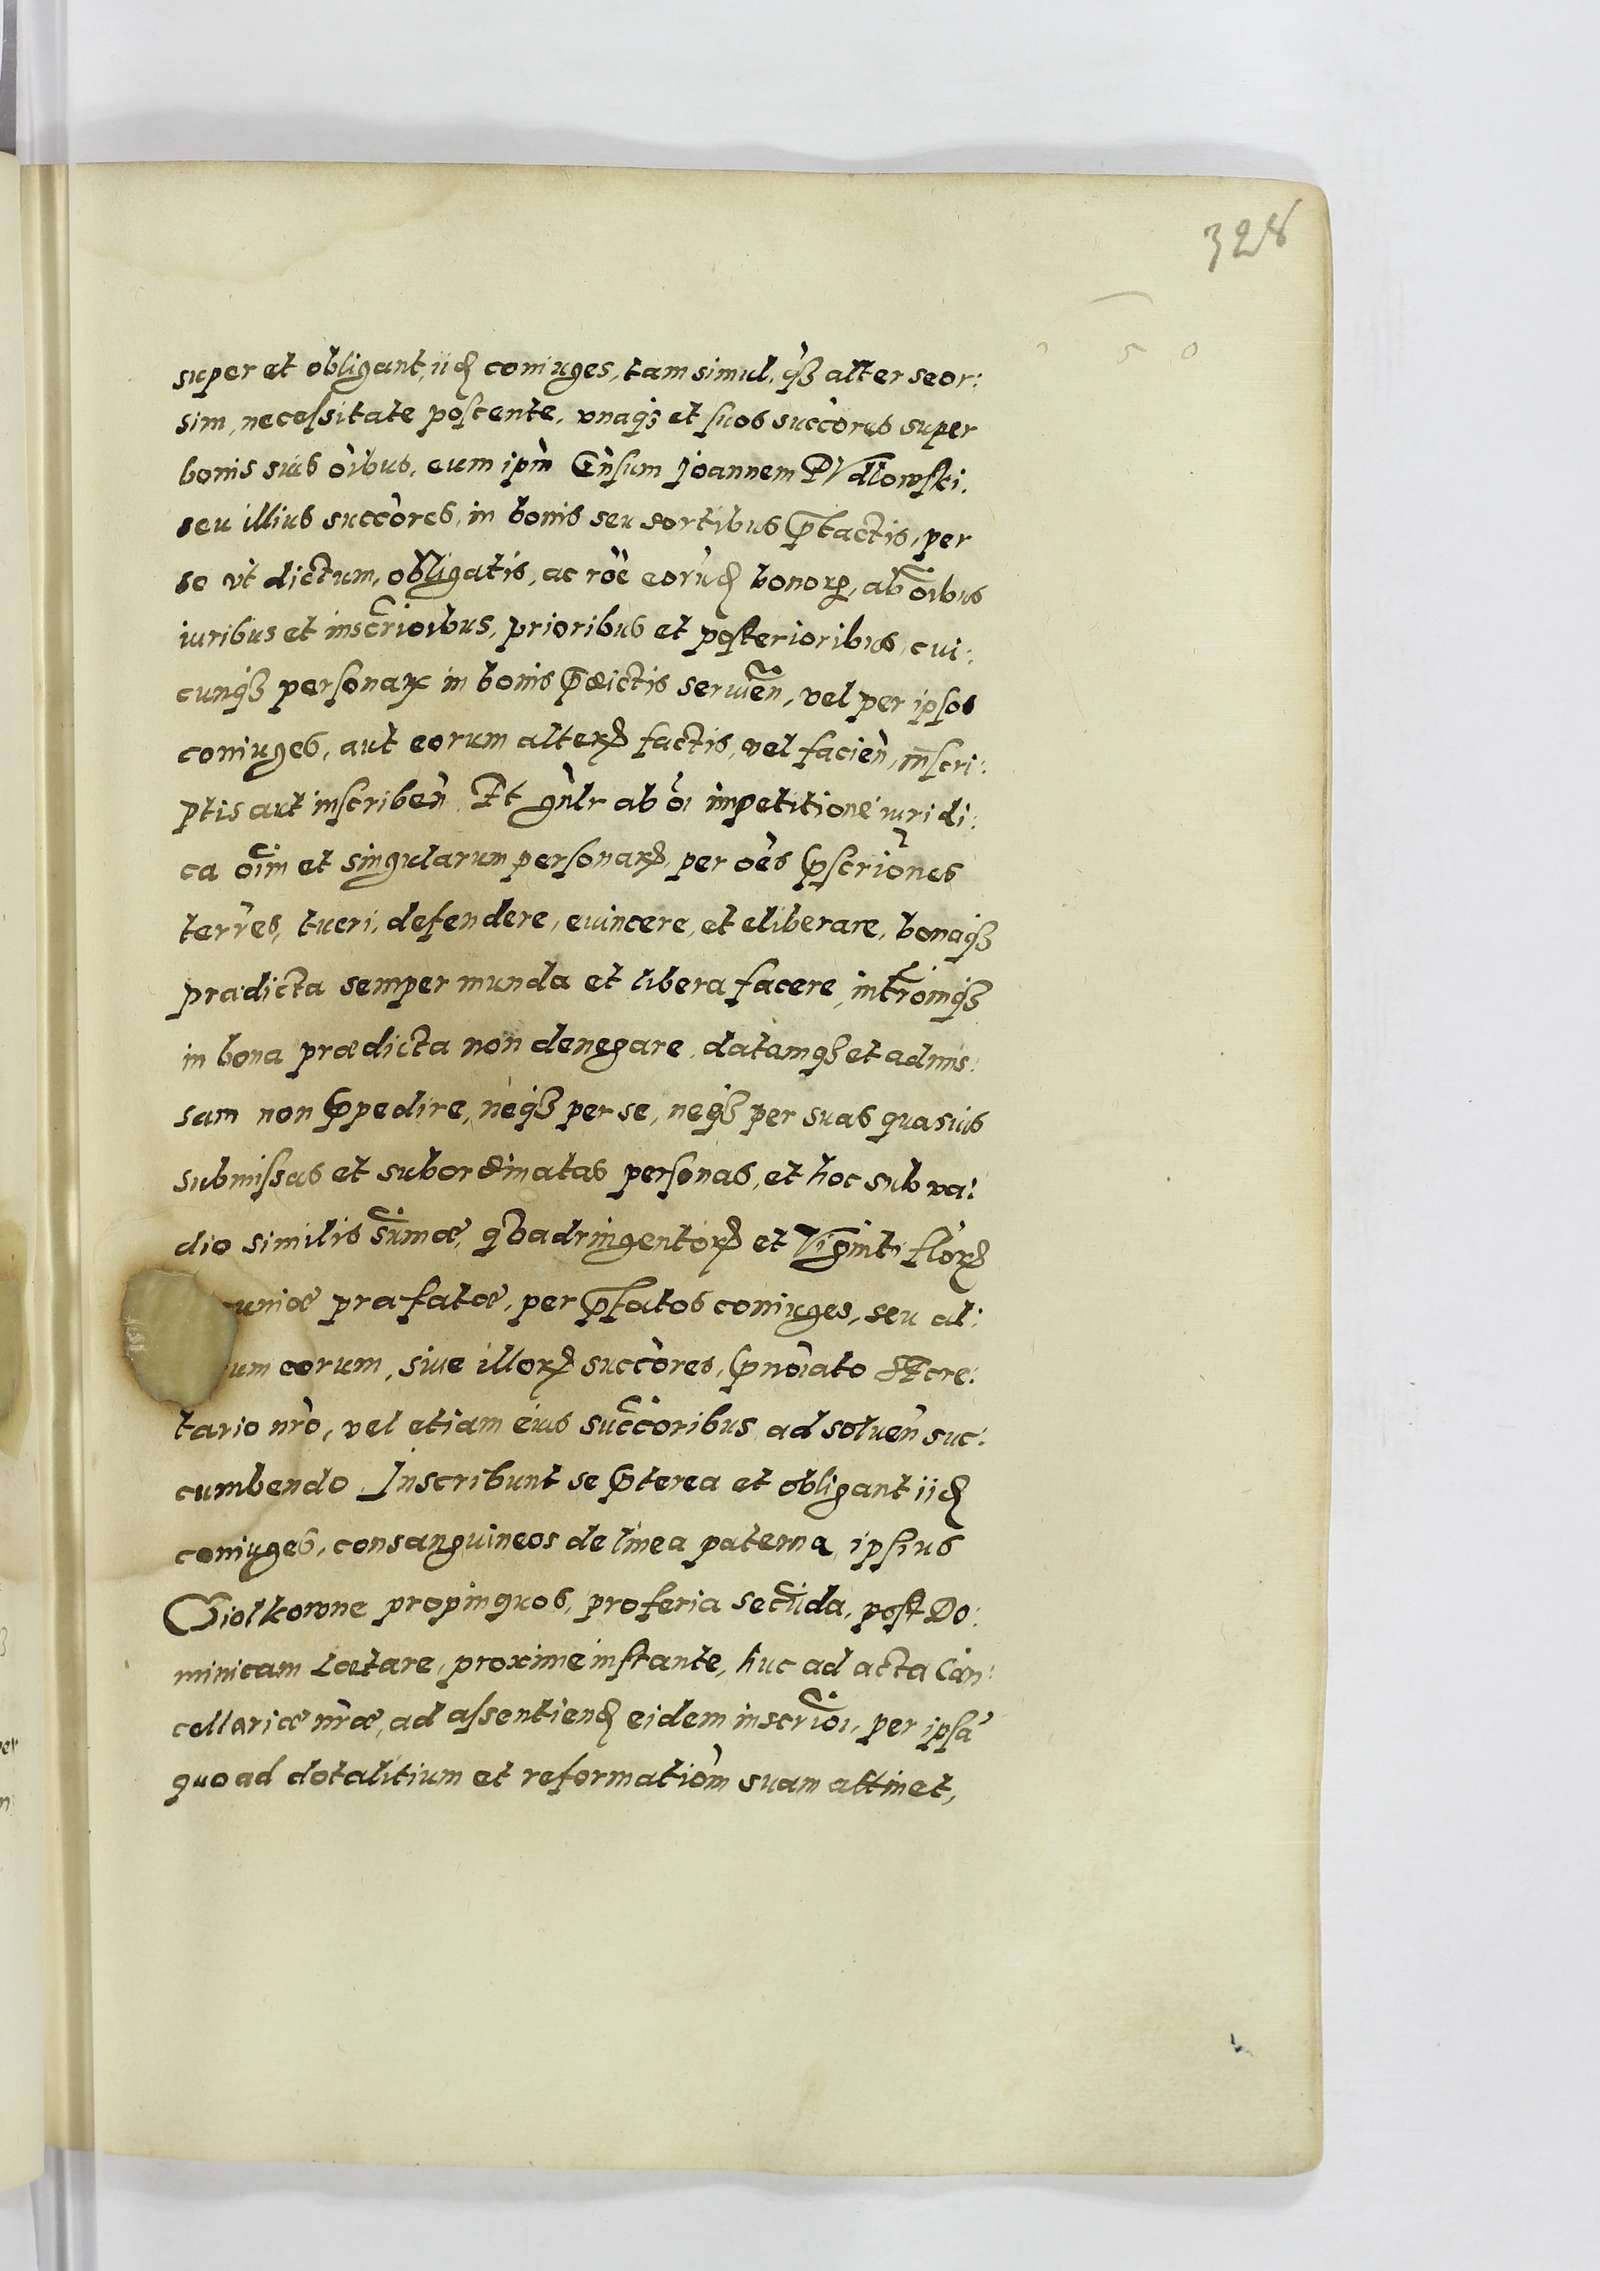 328
super et obligant, iid coniuges, tam simul, q̃ȝ alter seor:
sim, necessitate poscente, vnaq̃ȝ et suos succores super
bonis suis oibus, eum ipm Gnsum Joannem Wdlowski.
seu illius succores, in bonis seu sortibus ptactis, per
se vt dictum, obligatis, ac roe eorud bonorꝝ, ab oibus
iuribus et inscrioibus, prioribus et posterioribus, cui:
cunqȝ personarꝝ in bonis pdictis seruien, vel per ipsos
coniuges, aut eorum alterꝝ factis, vel facien, inscri:
ptis aut inscriben. Et gnlr ab oi impetitione iuridi:
ca oim et singularum personarꝝ, per oes pscriones
terres, tueri, defendere, euincere, et eliberare, bonaqȝ
prædicta semper munda et libera facere, intromqȝ
in bona prædicta non denegare, datamqȝ et admis:
sam non ppedire, neqȝ per se, neqȝ per suas quasuis
submissas et subordinatas personas, et hoc sub va:
dio similis sumæ, quadringentorꝝ et Viginti florꝝ
uniæ præfatæ, per pfatos coniuges, seu al:
um eorum, siue illorꝝ succores, pnoiato Secre:
tario nro, vel etiam eius succoribus ad soluen suc:
cumbendo. Inscribunt se pterea et obligant iid
coniuges, consanguineos de linea paterna ipsius
Giolkowne propinquos, pro feria secuda, post Do:
minicam Lætare, proxime instante, huc ad acta Can:
cellariæ nræ, ad assentiend eidem inscrioi, per ipsã
quo ad dotalitium et reformatiom suam attinet,